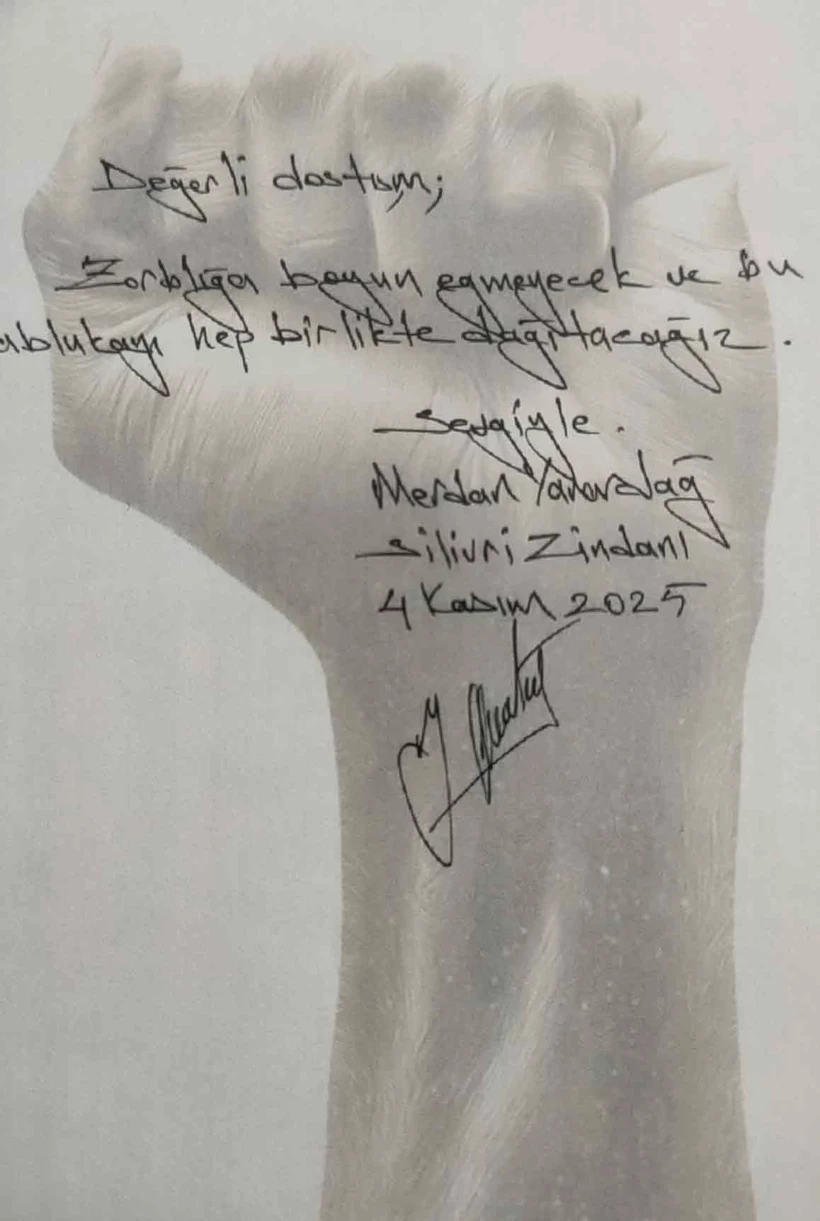 Değerli dostum;
Zorbalığa boyun eğmeyecek ve bu
ablukayı hep birlikte dağıtacağız.
Sevgiyle.
Merdan Yanardağ
Silivri Zindanı
4 Kasım 2025